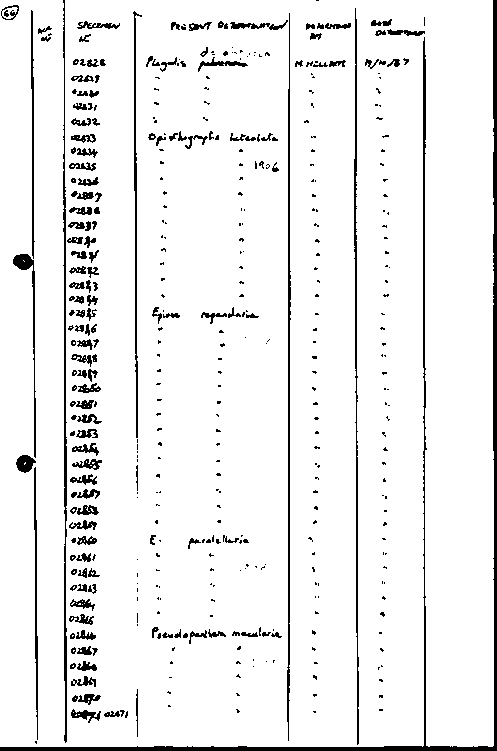 66
SPECIMEN PRESENT DETERMINATION
02828 Plagodis pulveraria M. HILLARY
02829 " "
02830 " "
02831 " "
02832 " "
02833 Opisthographa luteolata
02834 " "
02835 " " 1906
02836 " "
02837 " "
02838 " "
02839 " "
02840 " "
02841 " "
02842 " "
02843 " "
02844 " "
02845 Epione repandaria
02846 " "
02847 " "
02848 " "
02849 " "
02850 " "
02851 " "
02852 " "
02853 " "
02854 " "
02855 " "
02856 " "
02857 " "
02858 " "
02859 " "
02860 E. paralellaria
02861 " "
02862 " "
02863 " "
02864 " "
02865 " "
02866 Pseudopanthera macularia
02867 " "
02868 " "
02869 " "
02870 " "
02871 " "